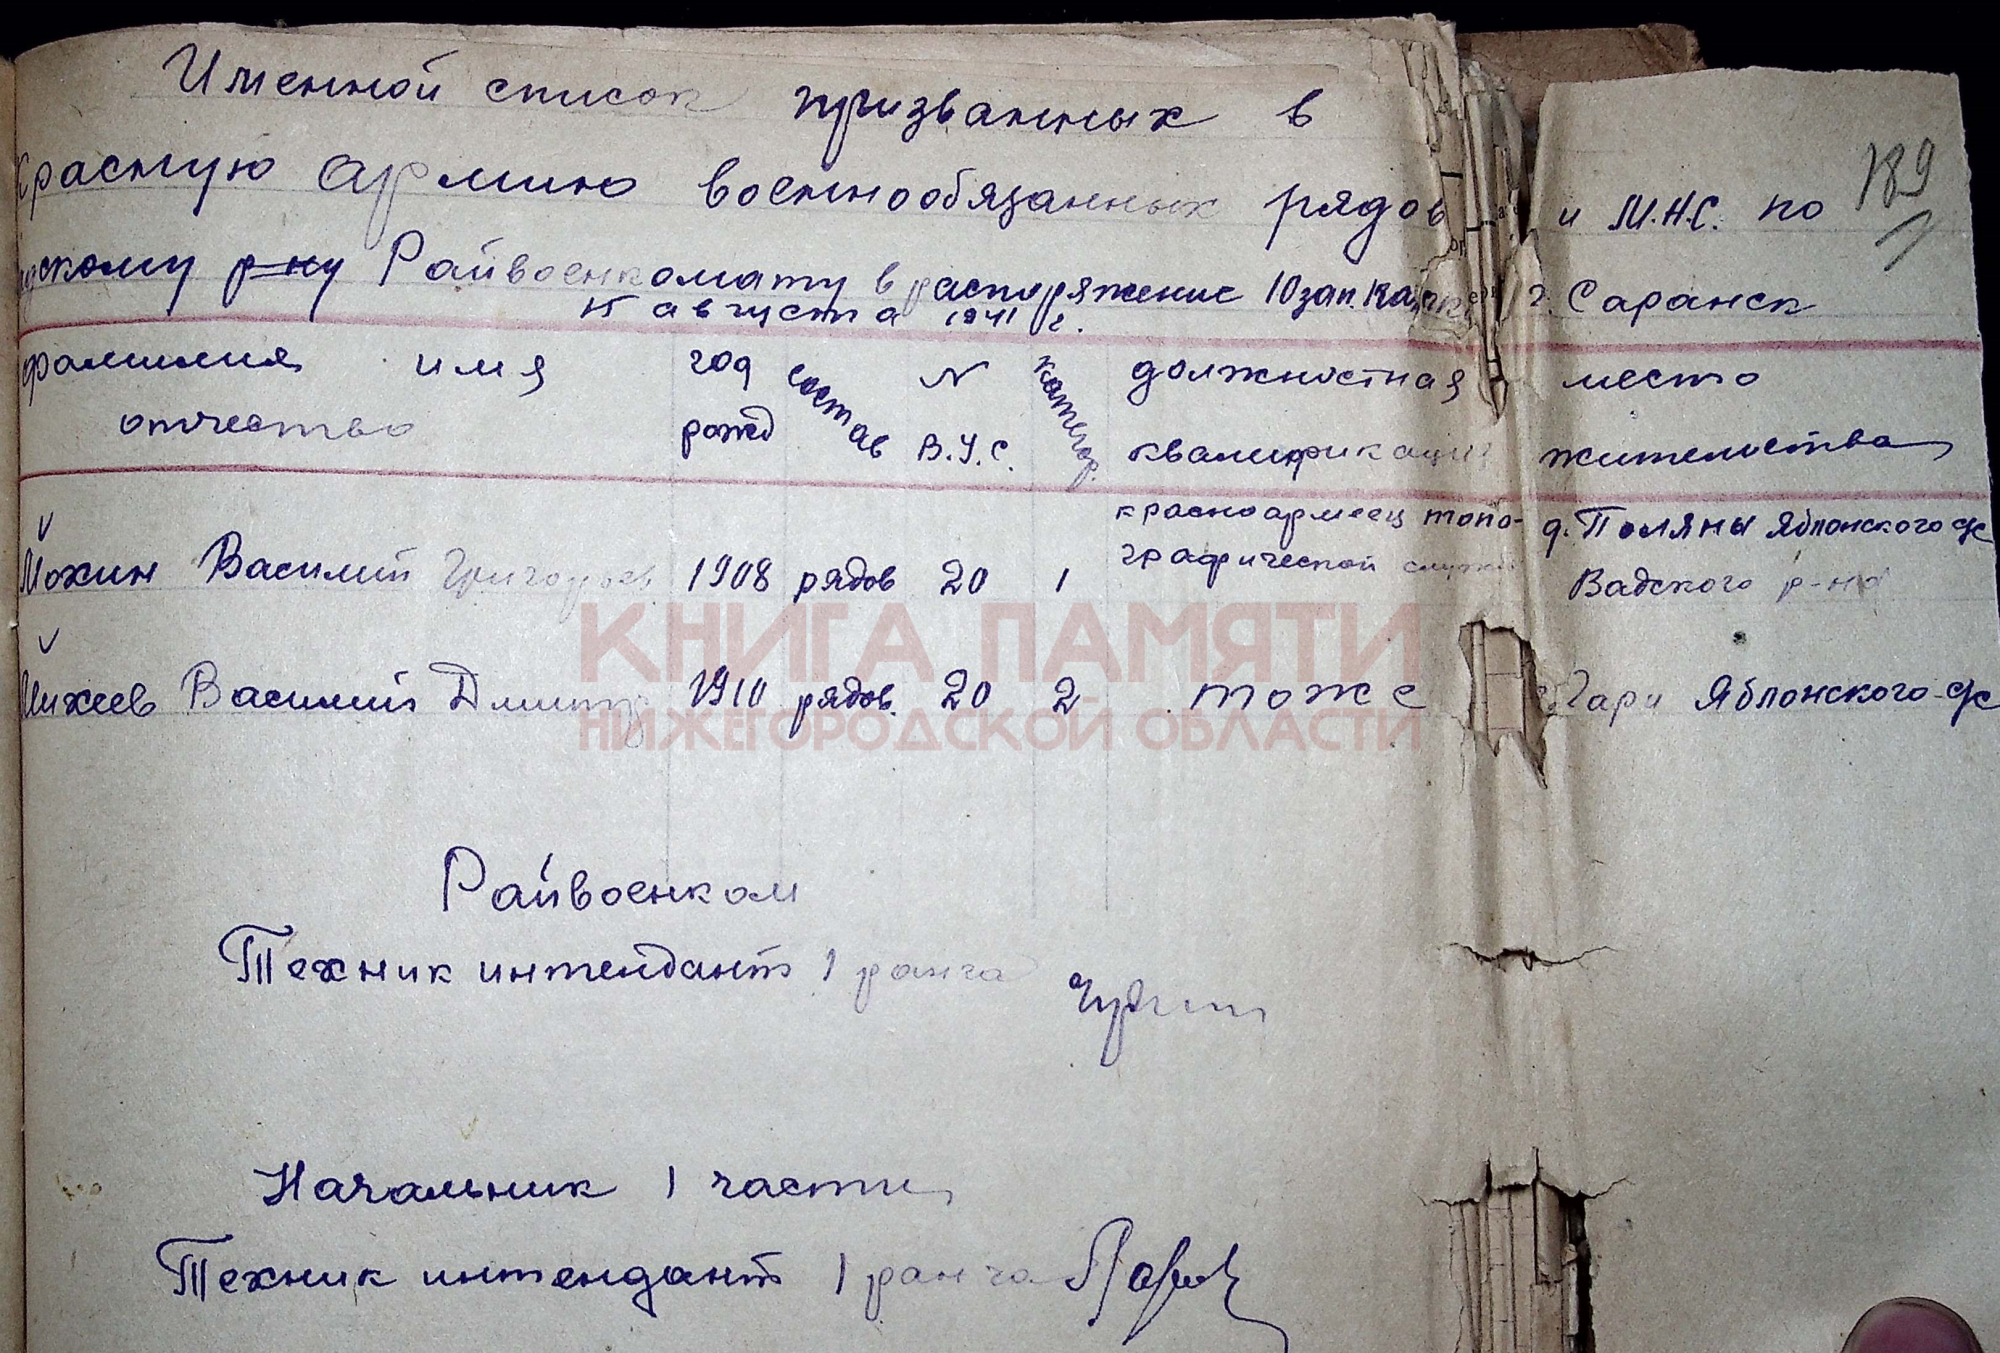 Именной список призванных в
Красную армию военнообязанных рядов и М.Н.С. по
189
1
дскому р-ну Райвоенкомату в распоряжение 10 зап. г. Саранск
15 августа 1941 г.
фамилия имя отчество
год рожд
состав
N В.У.С.
категор.
должностная квалификация
место жительства
Мохин Василий Григорьев 1908 рядов 20 1 красноармеец топо-графической службы д. Поляны Яблонского с/с Вадского р-на
Михеев Василий Дмитр 1910 рядов. 20 2 тоже Гари Яблонского с/с
КНИГА ПАМЯТИ
НИЖЕГОРОДСКОЙ ОБЛАСТИ
Райвоенком
Техник интендант 1 ранга
Начальник 1 части
Техник интендант 1 ранга